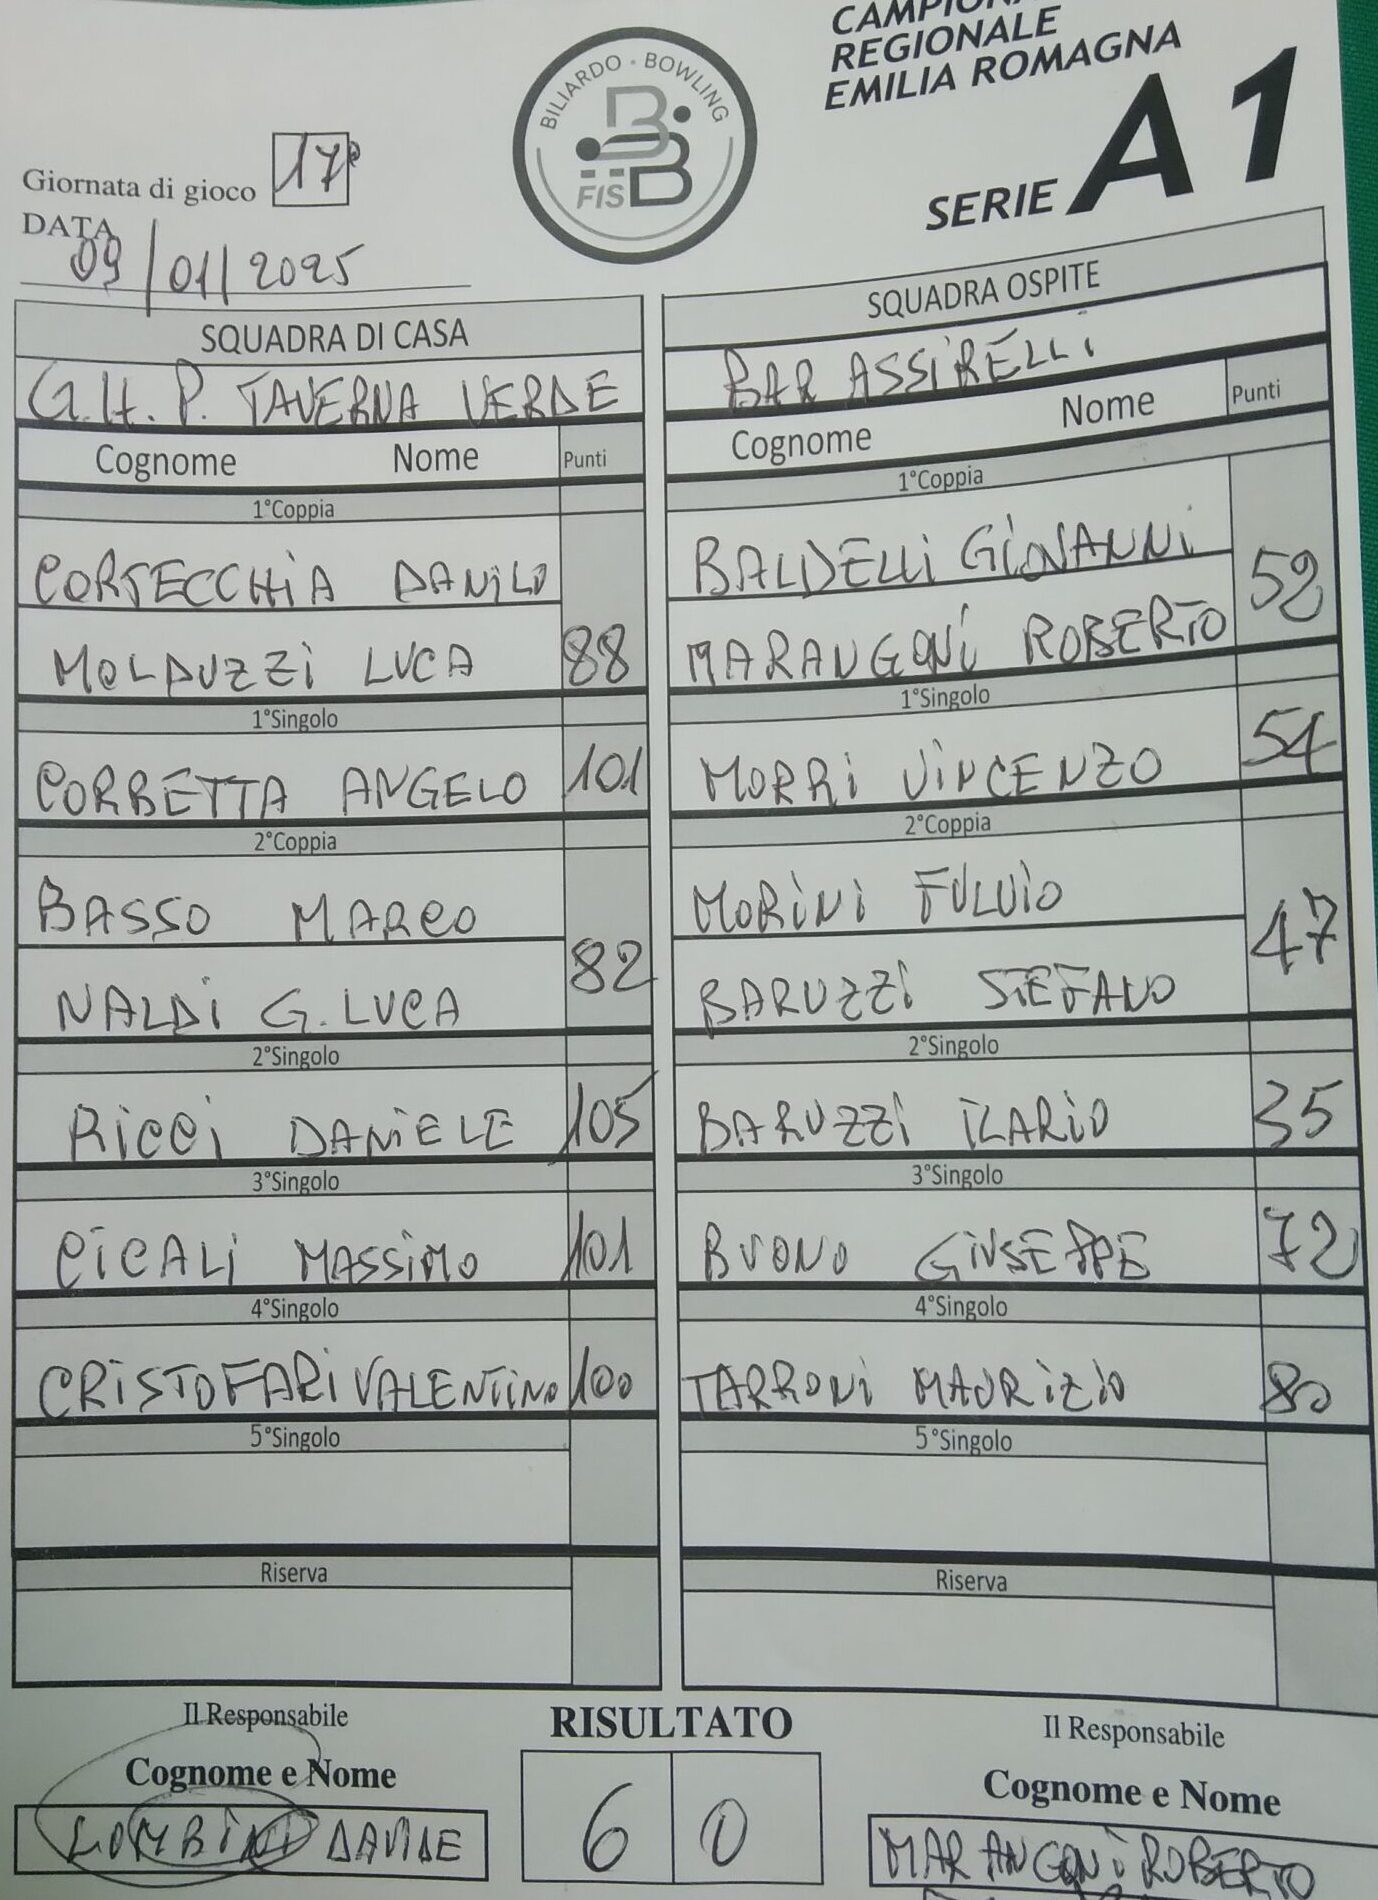 CAMPIONA
REGIONALE
EMILIA ROMAGNA
SERIE A1
BILIARDO · BOWLING
FISBB
Giornata di gioco 17ª
DATA
09/01/2025
SQUADRA DI CASA
G.H.P. TAVERNA VERDE
Cognome Nome Punti
1°Coppia
CORTECCHIA DANILO
MOLDUZZI LUCA 88
1°Singolo
CORBETTA ANGELO 101
2°Coppia
BASSO MARCO
NALDI G.LUCA 82
2°Singolo
RICCI DANIELE 105
3°Singolo
CICALI MASSIMO 101
4°Singolo
CRISTOFARI VALENTINO 100
5°Singolo
Riserva
Il Responsabile
Cognome e Nome
LOMBINI DAVIDE
SQUADRA OSPITE
BAR ASSIRELLI
Cognome Nome Punti
1°Coppia
BALDELLI GIOVANNI
MARANGONI ROBERTO 52
1°Singolo
MORRI VINCENZO 54
2°Coppia
MORINI FULVIO
BARUZZI STEFANO 47
2°Singolo
BARUZZI ILARIO 35
3°Singolo
BUONO GIUSEPPE 72
4°Singolo
TARRONI MAURIZIO 80
5°Singolo
Riserva
RISULTATO
6 0
Il Responsabile
Cognome e Nome
MARANGONI ROBERTO